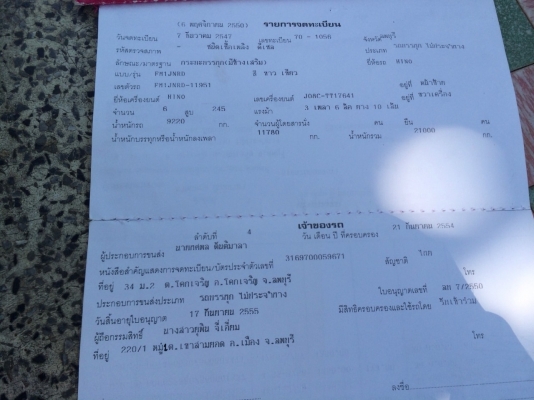 (6 พฤศจิกายน 2550) รายการจดทะเบียน
วันจดทะเบียน 1 ธันวาคม 2547 เลขทะเบียน 70 - 1056 จังหวัด ลพบุรี
รหัสตรวจสภาพ - ชนิดเชื้อเพลิง ดีเซล ประเภท รถบรรทุก ไม่ประจำทาง
ลักษณะ/มาตรฐาน กระบะบรรทุก(มีข้างเสริม) ยี่ห้อรถ HINO
แบบ/รุ่น FM1JNKD สี ขาว เขียว
เลขตัวรถ FM1JNKD-11951 อยู่ที่
ยี่ห้อเครื่องยนต์ HINO เลขเครื่องยนต์ J08C-TT17641 อยู่ที่ ขวาเครื่อง
จำนวน 6 สูบ 245 แรงม้า 3 เพลา 6 ล้อ ยาง 10 เส้น
น้ำหนักรถ 9220 กก. จำนวนผู้โดยสารนั่ง คน ยืน คน
น้ำหนักบรรทุกหรือน้ำหนักลงเพลา 11780 กก. น้ำหนักรวม 21000 กก.
เจ้าของรถ
ลำดับที่ 4 วัน เดือน ปี ที่ครอบครอง 21 กันยายน 2554
ผู้ประกอบการขนส่ง
หนังสือสำคัญแสดงการจดทะเบียน/บัตรประจำตัวเลขที่ 3169700059671 สัญชาติ ไทย
ที่อยู่ 34 ม.2 ต.โคกเจริญ อ.โคกเจริญ จ.ลพบุรี โทร
ประกอบการขนส่งประเภท รถบรรทุก ไม่ประจำทาง ใบอนุญาตเลขที่ ลบ 7/2550
วันสิ้นอายุใบอนุญาต 17 กันยายน 2555 มีสิทธิครอบครองและใช้รถโดย
ผู้ถือกรรมสิทธิ์ นางสาวยุพิน จี้เอี่ยม
ที่อยู่ 220/1 ต.เขาสามยอด อ.เมือง จ.ลพบุรี โทร
ลงชื่อ